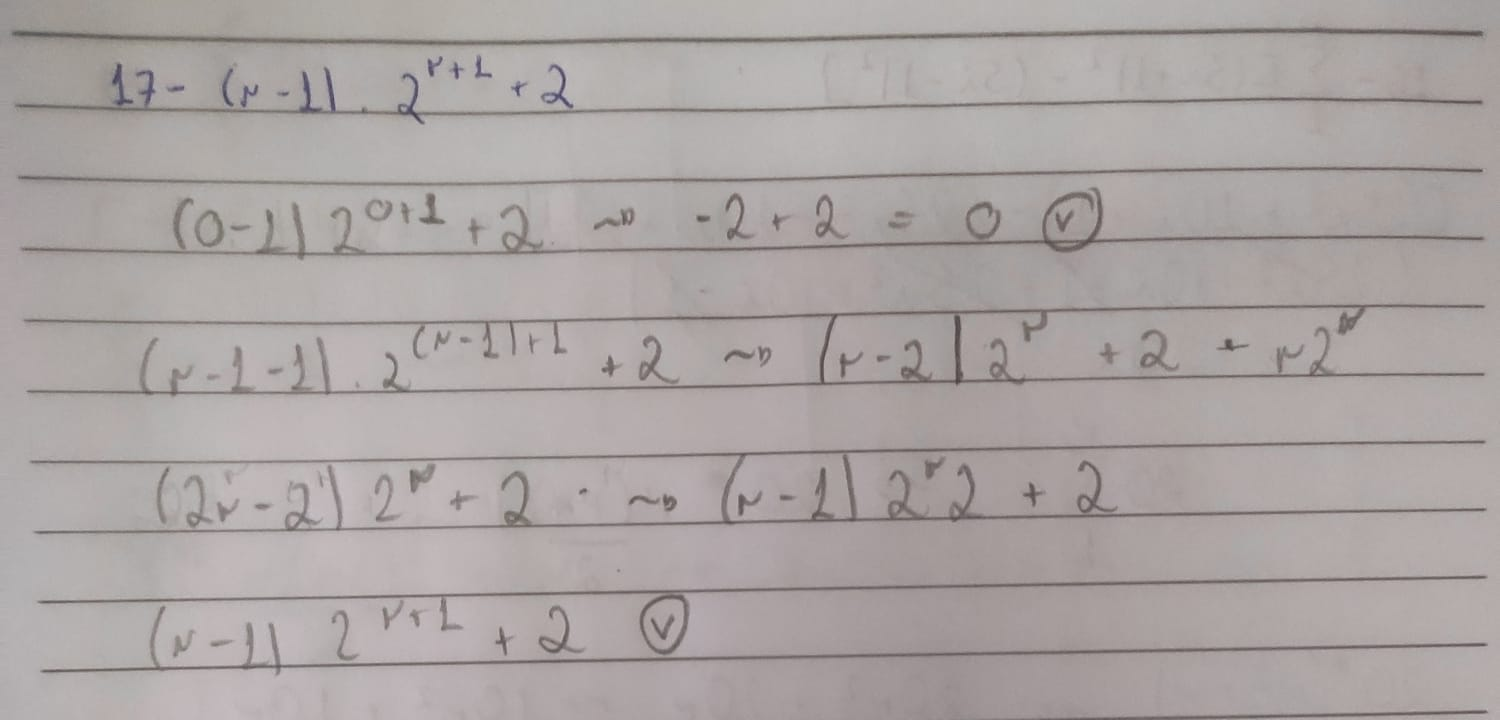 17- (n-1) . 2^(n+1) + 2
(0-1) 2^(0+1) + 2 ⤳ -2 + 2 = 0 ✓
(n-1-1) . 2^((n-1)+1) + 2 ⤳ (n-2) 2^n + 2 + n2^n
(2n-2) 2^n + 2 . ⤳ (n-1) 2^n 2 + 2
(n-1) 2^(n+1) + 2 ✓